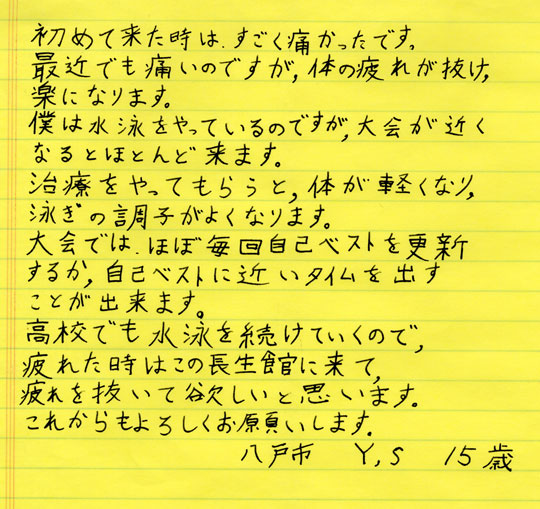 初めて来た時は、すごく痛かったです。
最近でも痛いのですが、体の疲れが抜け、
楽になります。
僕は水泳をやっているのですが、大会が近く
なるとほとんど来ます。
治療をやってもらうと、体が軽くなり、
泳ぎの調子がよくなります。
大会では、ほぼ毎回自己ベストを更新
するか、自己ベストに近いタイムを出す
ことが出来ます。
高校でも水泳を続けていくので、
疲れた時はこの長生食官に来て、
疲れを抜いて欲しいと思います。
これからもよろしくお願いします。
八戸市 Y,S 15歳